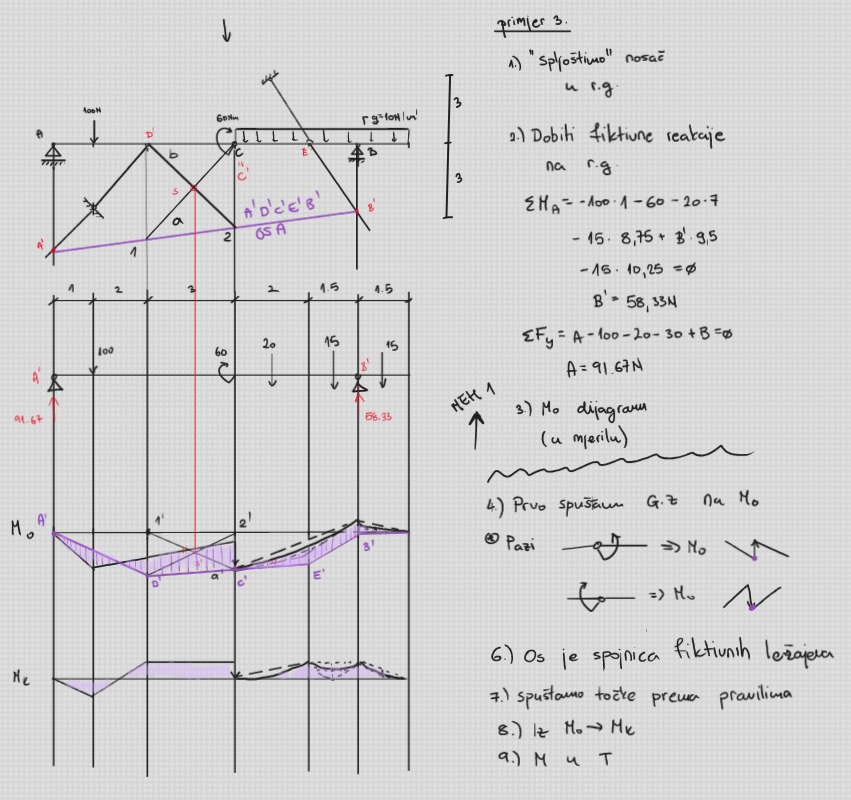 primjer 3.
1.) "Spljoštimo" nosač
u r.g.
2.) Dobiti fiktivne reakcije
na r.g.
ΣMA = -100·1 - 60 - 20·7
- 15·8,75 + B'·9,5
- 15·10,25 = ø
B' = 58,33N
ΣFy = A - 100 - 20 - 30 + B = ø
A = 91.67N
MEH 1
3.) Mo dijagram
(u mjerilu)
4.) Prvo spuštam G.Z na Mo
* Pazi => Mo
=> Mo
6.) Os je spojnica fiktivnih ležajeva
7.) spuštamo točke prema pravilima
8.) Iz Mo → Mk
9.) M u T
100N
60Nm
g=10N/m'
A
D'
b
C
C'
"
E
B
S
a
A' D' C' E' B'
OSA
B'
A'
1
2
3
3
1 2 3 2 1.5 1.5
100
60
20
15
15
A'
B'
91.67
58.33
Mo
A'
1'
2'
D'
a'
C'
E'
B'
Mk